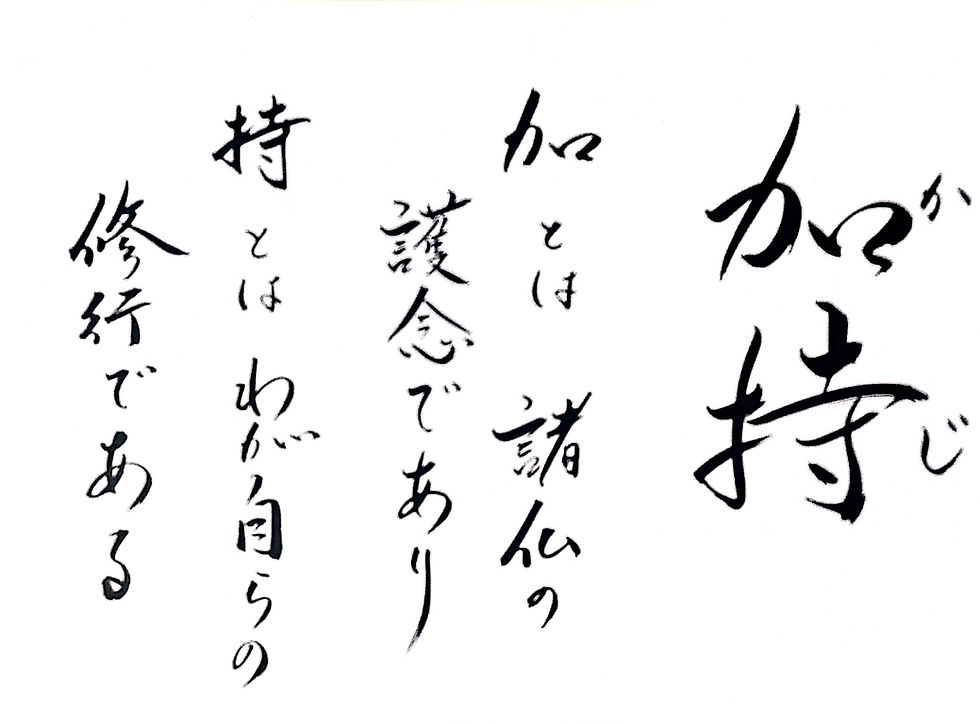 加持
かじ
加とは 諸仏の
護念であり
持とは わが自らの
修行である